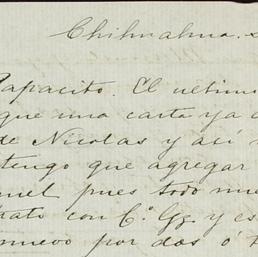 Chihuahua.
Papacito. El ultimo
que una carta ya
de Nicolas y así
tengo que agregar
pues todo
trato con C.º Gz y es
nuevo por dos ó